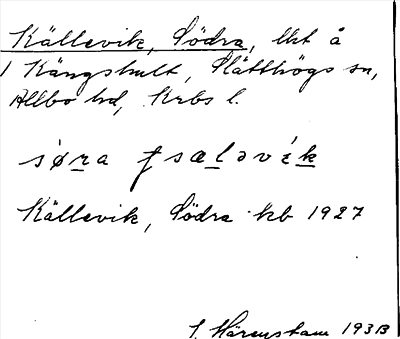 Källevik, Södra, lht å
1 Kängshult, Slätthögs sn,
Allbo hd, Krbs l.
søra ʃsæləvík
Källevik, Södra kb 1927
J. Härenstam 1933